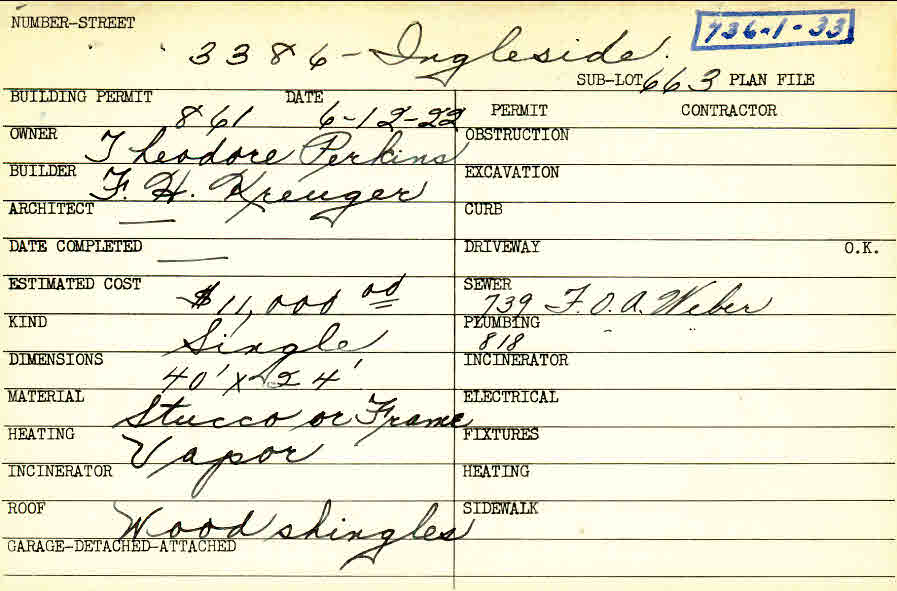 NUMBER-STREET
736-1-33
3386 - Ingleside.
SUB-LOT 663 PLAN FILE
BUILDING PERMIT 861 DATE 6-12-22
PERMIT CONTRACTOR
OWNER Theodore Perkins
OBSTRUCTION
BUILDER F. H. Kreuger
EXCAVATION
ARCHITECT —
CURB
DATE COMPLETED —
DRIVEWAY O.K.
ESTIMATED COST $11,000 00
SEWER 739 F. O. A. Weber
KIND Single
PLUMBING 818 " "
DIMENSIONS 40' x 24'
INCINERATOR
MATERIAL Stucco or Frame
ELECTRICAL
HEATING Vapor
FIXTURES
INCINERATOR
HEATING
ROOF Wood shingles
SIDEWALK
GARAGE-DETACHED-ATTACHED